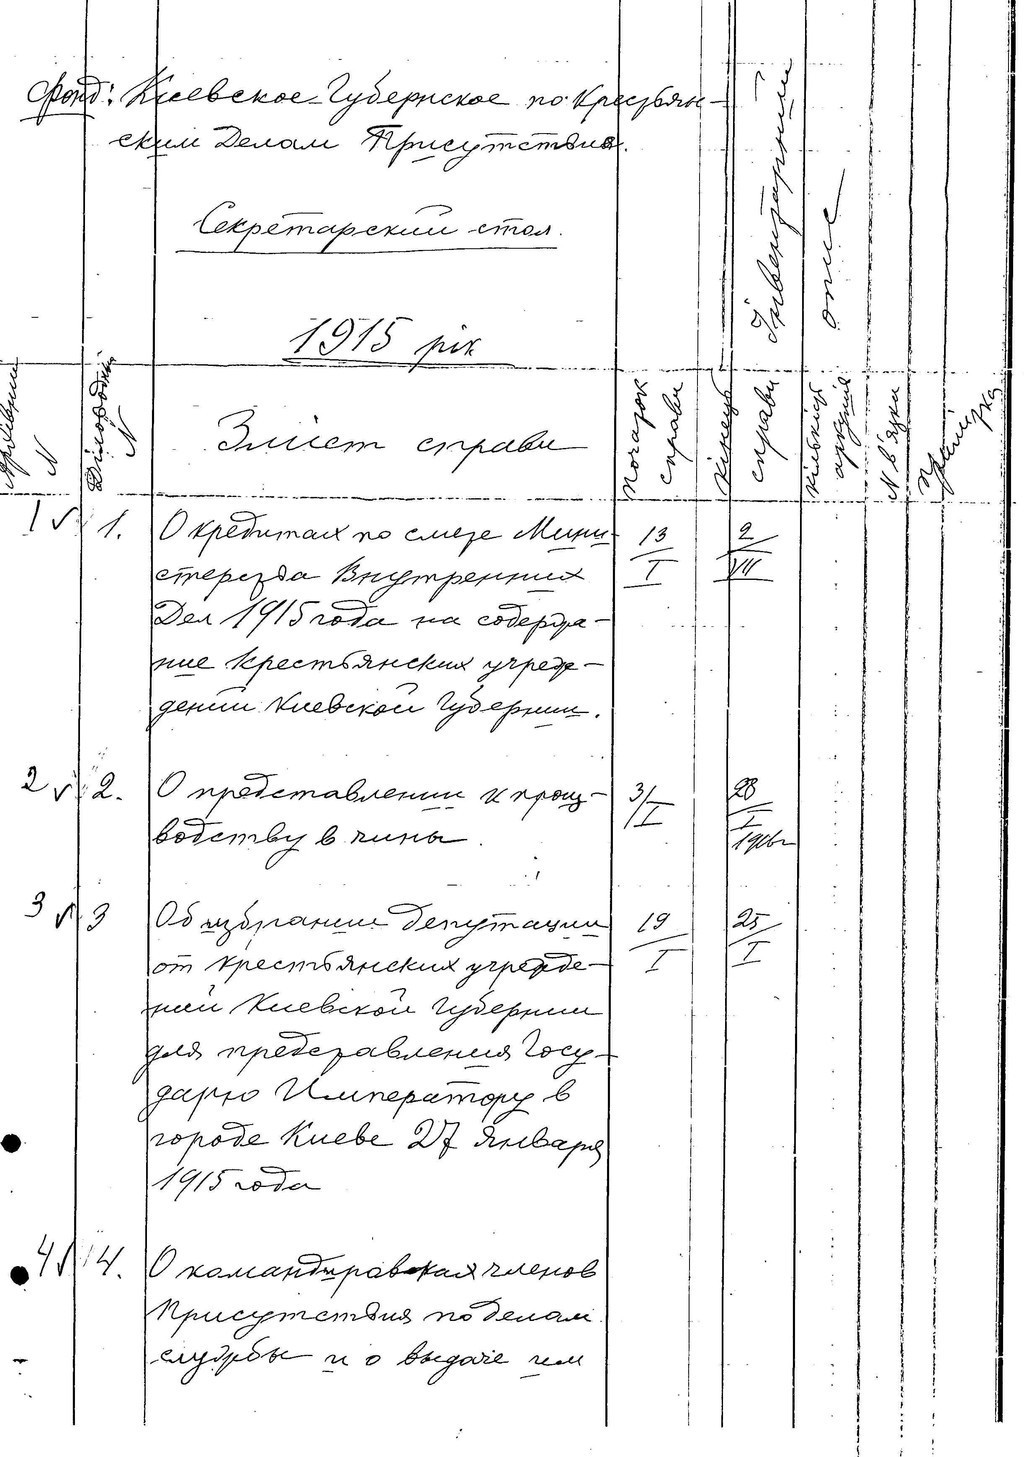 Фонд: Киевское Губернское по Крестьян-
ским Делам Присутствие.
Інвентарний
опис
Секретарский стол.
1915 рік
Архівний N
Діловодний N
Зміст справи
Початок справи
Кінець справи
Кількість аркушів
N в'язки
Примітка
1 v 1. О кредитах по смете Мини- 13/I 2/VII
стерства Внутренних
Дел 1915 года на содержа-
ние крестьянских учреж-
дений Киевской Губернии.
2 v 2. О представлении к произ- 3/I 28/I
водству в чины. 1916г
3 v 3 Об избрании депутации 19/I 25/I
от крестьянских учрежде-
ний Киевской Губернии
для представления Госу-
дарю Императору в
городе Киеве 27 Января
1915 года
4 v 4. О командировках членов
Присутствия по делам
службы и о выдаче им